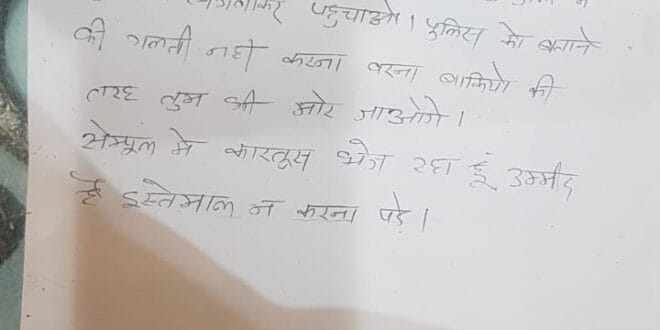 पहुचाओ । पुलिस को बताने
की गलती नही करना वरना बाकियो की
तरह तुम भी मारे जाओगे ।
सेम्पल मे कारतूस भेज रहा हूं उम्मीद
है इस्तेमाल न करना पडे ।